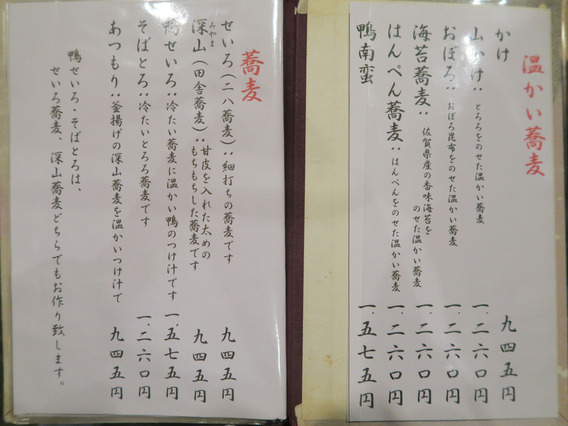 温かい蕎麦
かけ 九四五円
山かけ:とろろをのせた温かい蕎麦 一、二六〇円
おぼろ:おぼろ昆布をのせた温かい蕎麦 一、二六〇円
海苔蕎麦:佐賀県産の香味海苔を
のせた温かい蕎麦 一、二六〇円
はんぺん蕎麦:はんぺんをのせた温かい蕎麦 一、二六〇円
鴨南蛮 一、五七五円
蕎麦
せいろ(二八蕎麦):細打ちの蕎麦です 九四五円
深山(田舎蕎麦):甘皮を入れた太めの
みやま
もちもちした蕎麦です 九四五円
鴨せいろ:冷たい蕎麦に温かい鴨のつけ汁です 一、五七五円
そばとろ:冷たいとろろ蕎麦です 一、二六〇円
あつもり:釜揚げの深山蕎麦を温かいつけ汁で 九四五円
鴨せいろ・そばとろは、
せいろ蕎麦、深山蕎麦どちらでもお作り致します。